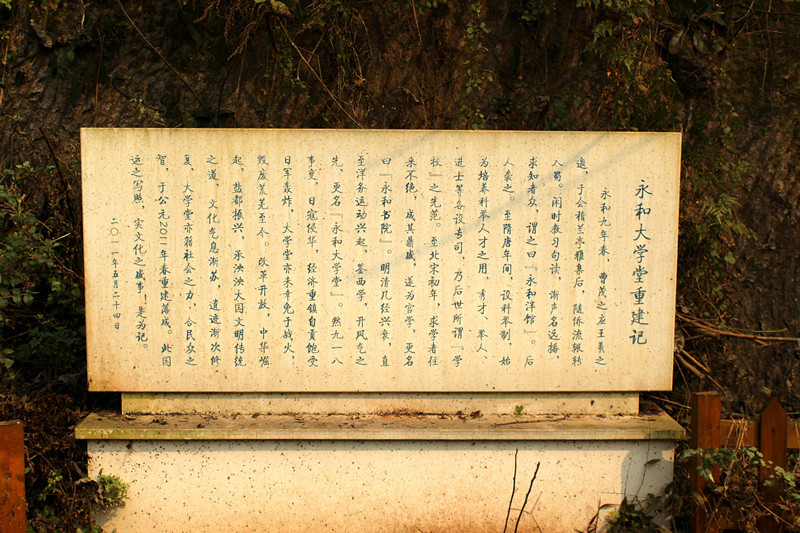 永和大学堂重建记
永和九年春，曹茂之应王羲之
邀，于会稽兰亭雅集后，随侨流辗转
入蜀。闲时教习句读，渐声名远播，
求知者众，谓之曰『永和泮馆』。后
人柰之。至隋唐年间，设科举制，始
为培养科举人才之用，秀才、举人、
进士等各设专司，乃后世所谓『学
校』之先范。至北宋初年，求学者往
来不绝，成其鼎盛，遂为官学，更名
曰『永和书院』。明清几经兴衰，直
至洋务运动兴起，鉴西学，开风气之
先，更名『永和大学堂』。然九一八
事变，日寇侵华，经济重镇自贡饱受
日军轰炸，大学堂亦未幸免于战火，
毁废荒芜至今。改革开放，中华崛
起，盐都振兴，承泱泱大国文明传统
之道，文化气息渐苏，遗迹渐次修
复，大学堂亦蓊社会之力，合民众之
智，于公元2011年春重建落成。此国
运之写照，实文化之盛事！是为记。
二〇一一年五月二十四日